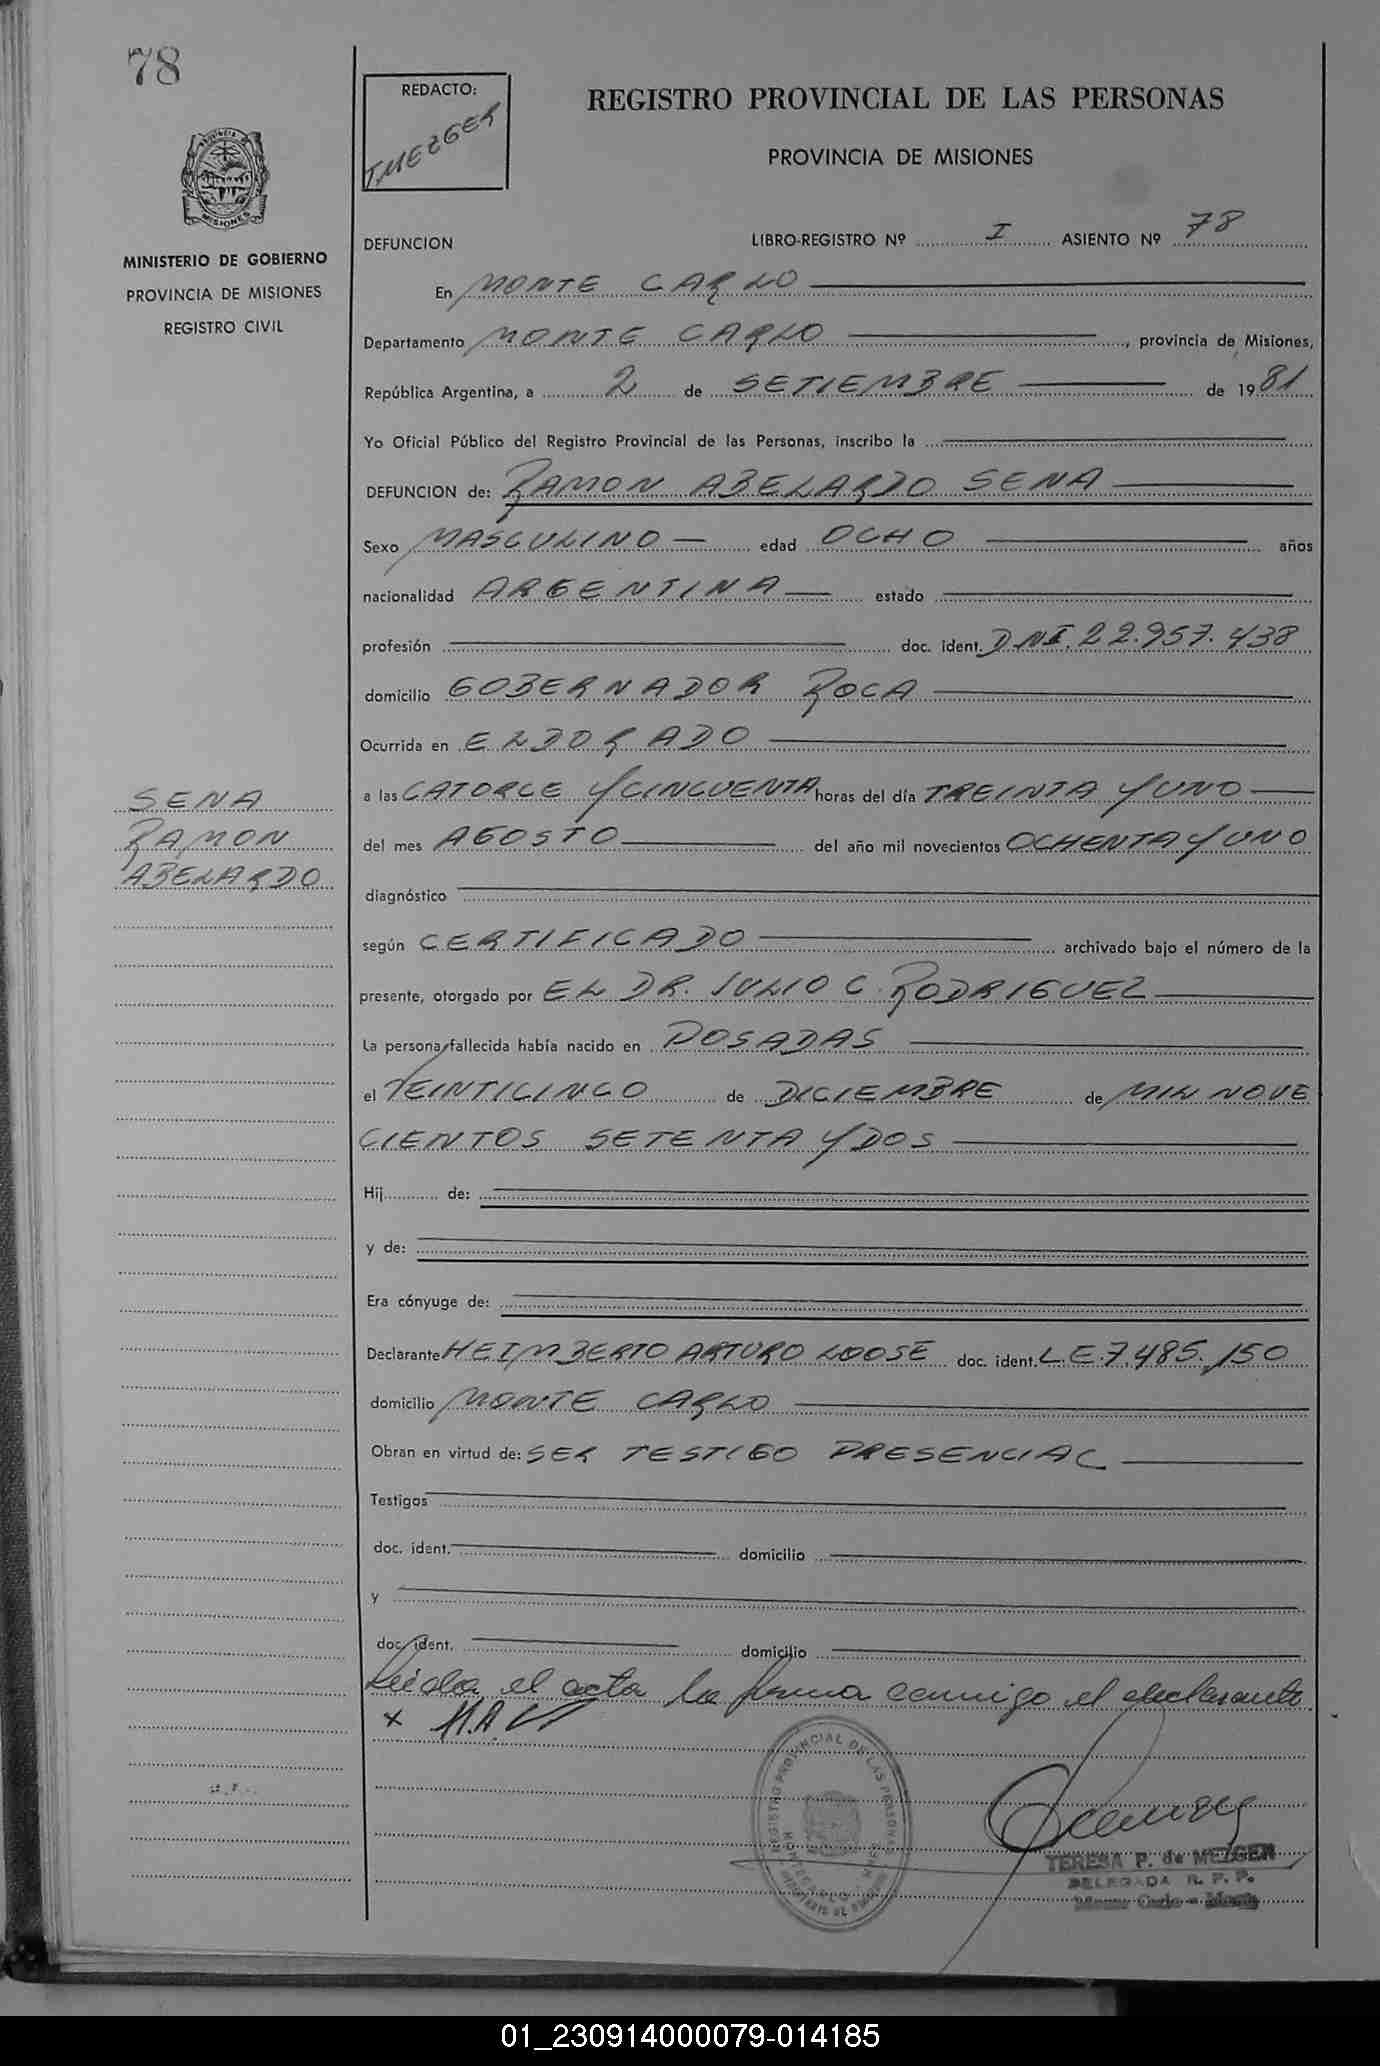 78
REDACTO:
T.MEZGER
REGISTRO PROVINCIAL DE LAS PERSONAS
PROVINCIA DE MISIONES
PROVINCIA DE
MISIONES
MINISTERIO DE GOBIERNO
PROVINCIA DE MISIONES
REGISTRO CIVIL
DEFUNCION
LIBRO-REGISTRO Nº I ASIENTO Nº 78
En MONTE CARLO
Departamento MONTE CARLO, provincia de Misiones,
República Argentina, a 2 de SETIEMBRE de 1981
Yo Oficial Público del Registro Provincial de las Personas, inscribo la
DEFUNCION de: RAMON ABELARDO SENA
Sexo MASCULINO edad OCHO años
nacionalidad ARGENTINA estado
profesión doc. ident. DNI. 22.957.438
domicilio GOBERNADOR ROCA
Ocurrida en ELDORADO
a las CATORCE Y CINCUENTA horas del día TREINTA Y UNO
del mes AGOSTO del año mil novecientos OCHENTA Y UNO
diagnóstico
según CERTIFICADO archivado bajo el número de la
presente, otorgado por EL DR. JULIO C. RODRIGUEZ
La persona fallecida había nacido en POSADAS
el VEINTICINCO de DICIEMBRE de MIL NOVE
CIENTOS SETENTA Y DOS
Hij de:
y de:
Era cónyuge de:
Declarante HEIMBERTO ARTURO LOOSE doc. ident. L.E.7.485.150
domicilio MONTE CARLO
Obran en virtud de: SER TESTIGO PRESENCIAL
Testigos
doc. ident. domicilio
y
doc. ident. domicilio
Leida el acta la firma conmigo el declarante
SENA
RAMON
ABELARDO
x
REGISTRO PROVINCIAL DE LAS PERSONAS
TERESA P. de MEZGER
DELEGADA R. P. P.
Monte Carlo - Mnes
01_230914000079-014185